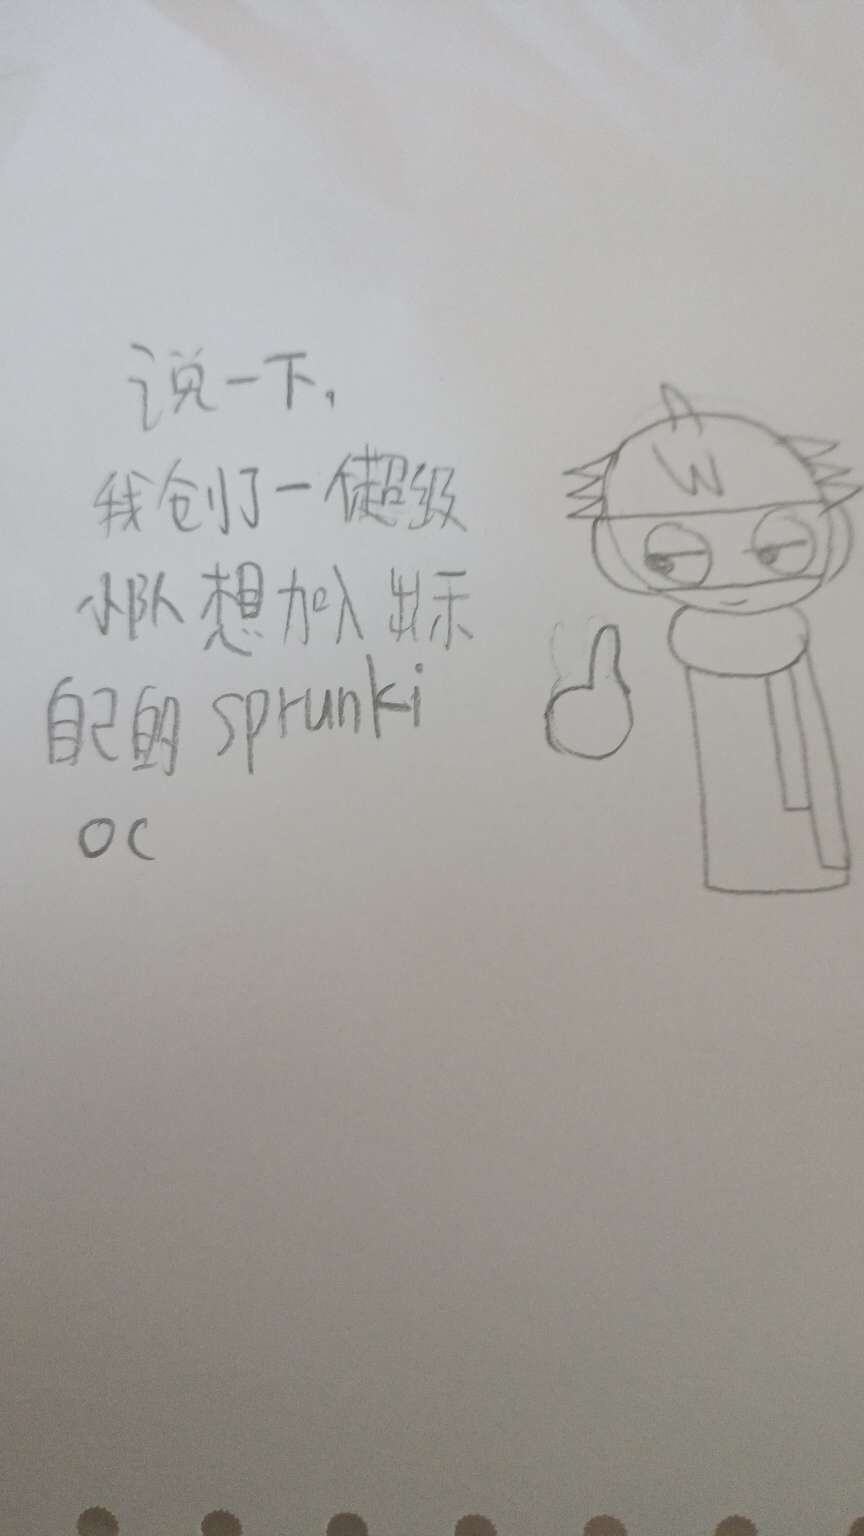 说一下，
我创了一个超级
小队想加入出示
自己的 sprunki
oc
W